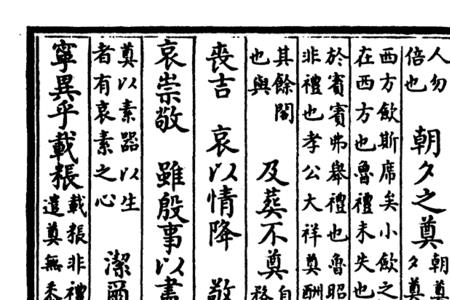 人勿
倍也
朝夕之奠
朝奠
夕奠
西方歛斯席矣小歛之
在西方也魯禮末失也
於賓賓弗舉禮也魯昭
非禮也孝公大祥奠酬
其餘閣
也與
及葬不奠
自
喪吉 哀以情降 敬
哀崇敬 雖殷事以
奠以素器以生
者有哀素之心
潔爾
寧異乎載粻
載粻非禮
遣奠無黍